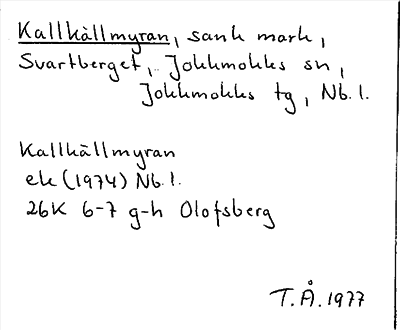 Kallkällmyran, sank mark,
Svartberget, Jokkmokks sn,
Jokkmokks tg, Nb.l.
Kallkällmyran
ek (1974) Nb.l.
26K 6-7 g-h Olofsberg
T.Å. 1977